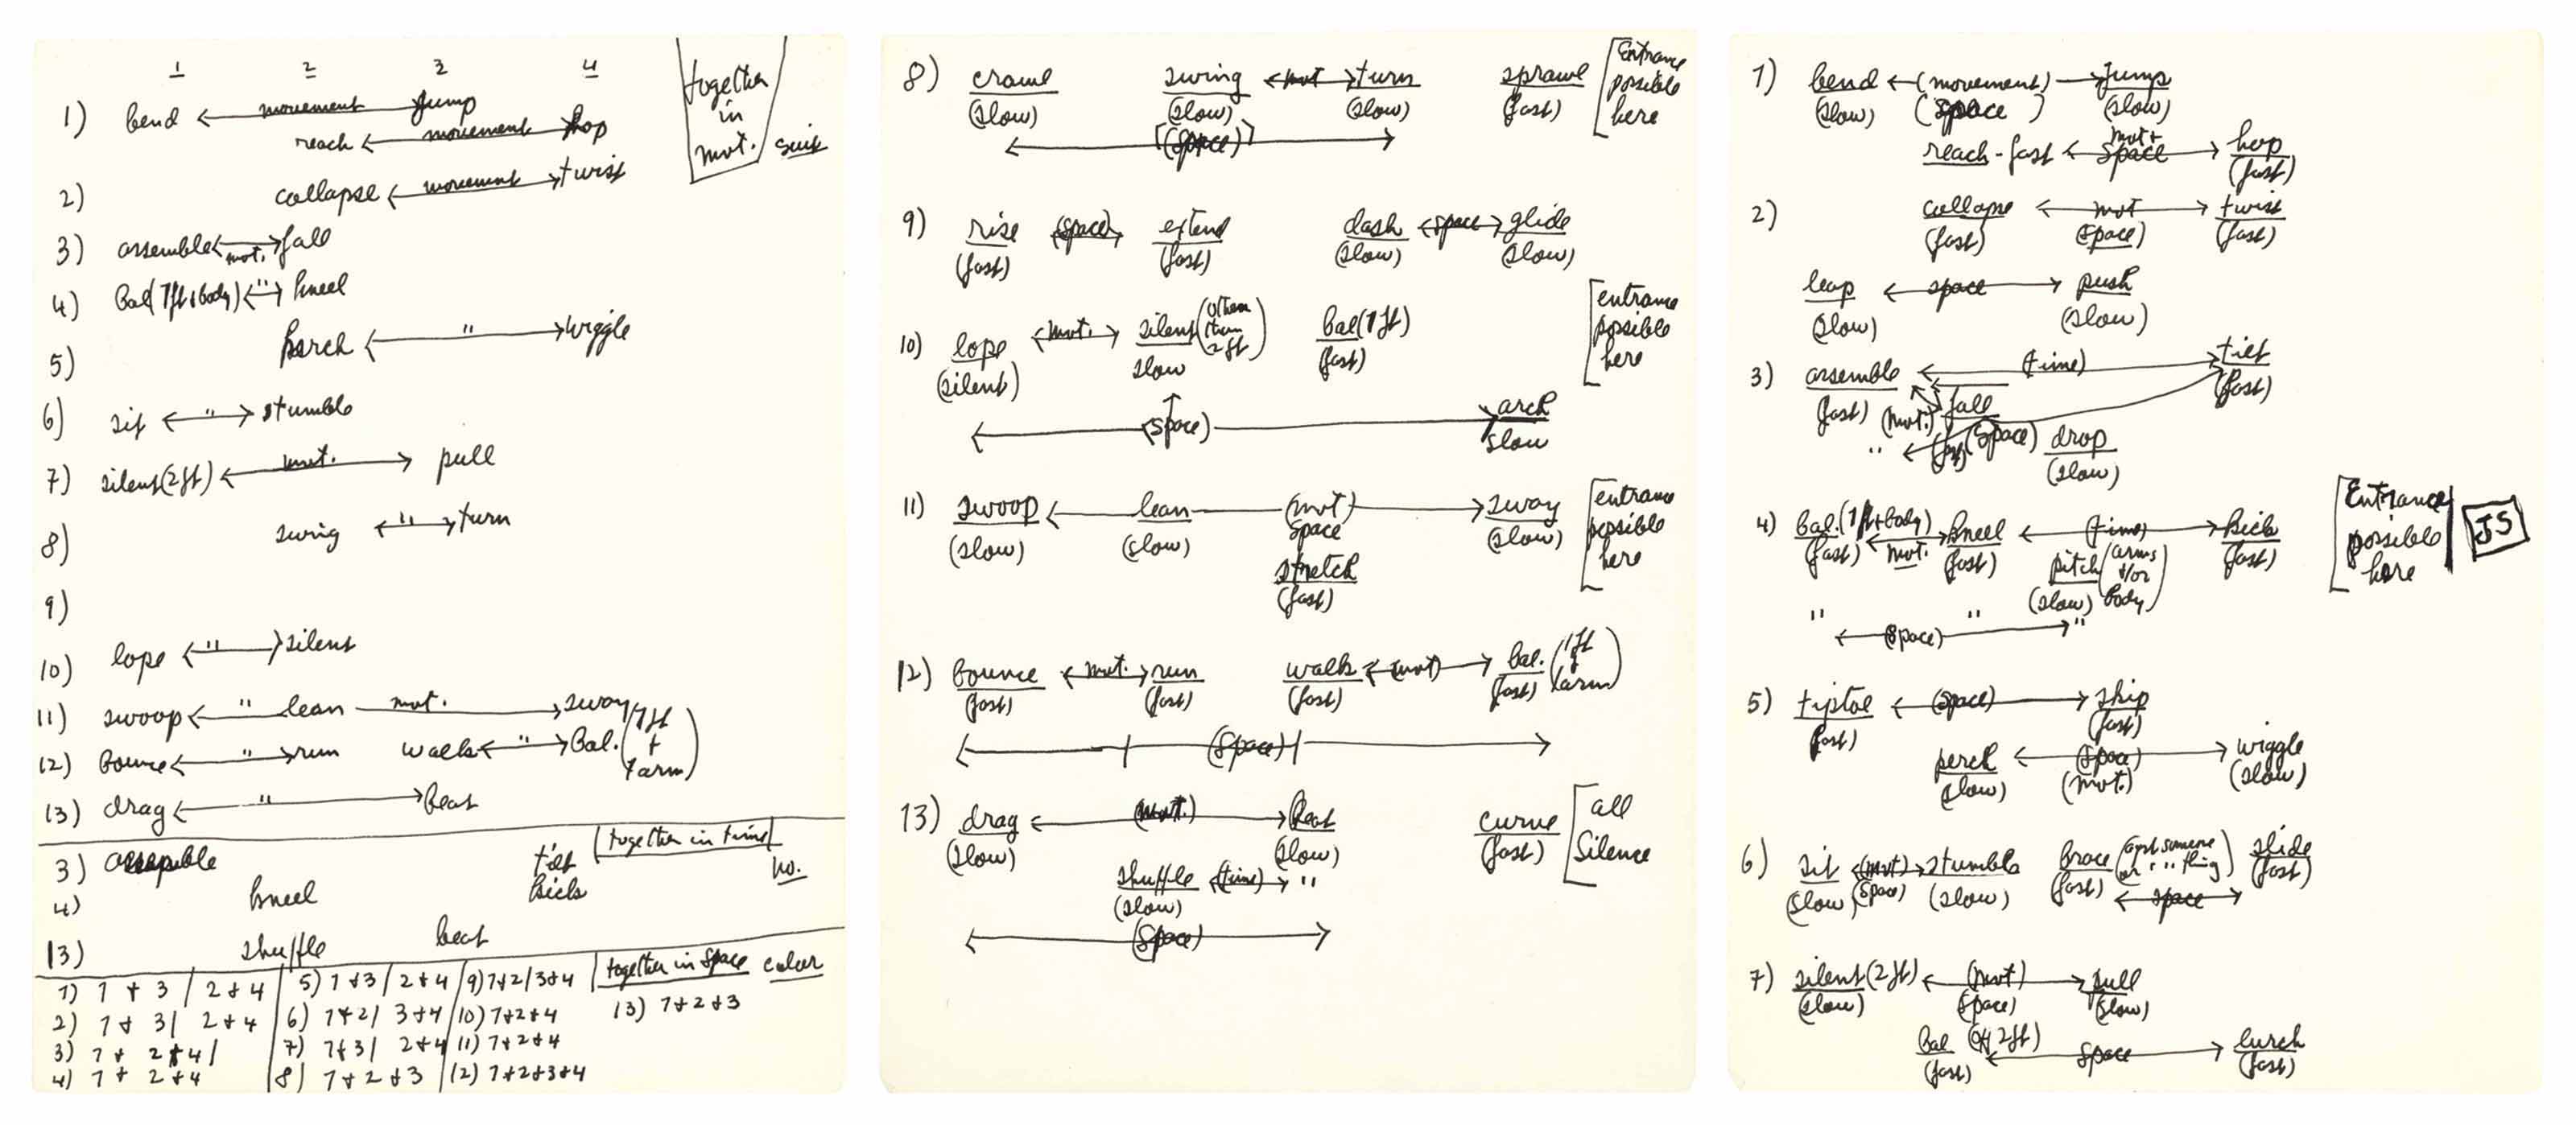 1 2 3 4
together in mvt. suit
1) bend ← movement → jump
reach ← movement → hop
2) collapse ← movement → twist
3) assemble ← mvt. → fall
4) Bal(1ft+body) ← " → kneel
5) perch ← " → wiggle
6) sit ← " → stumble
7) silent(2ft) ← mvt. → pull
8) swing ← " → turn
9)
10) lope ← " → silent
11) swoop ← " lean mvt. → sway
12) Bounce ← " → run walk ← " → Bal. (1ft + 1arm)
13) drag ← " → beat
together in time no.
3) assemble tilt
4) kneel kick
13) shuffle beat
together in space color
1) 1 + 3 / 2 + 4 5) 1+3 / 2+4 9) 1+2 / 3+4
2) 1 + 3 / 2 + 4 6) 1+2 / 3+4 10) 1+2+4 13) 1+2+3
3) 1 + 2+4 / 7) 1+3 / 2+4 11) 1+2+4
4) 1 + 2+4 8) 1+2+3 12) 1+2+3+4
8) crawl swing ← mvt → turn sprawl [Entrance
(slow) (slow) (slow) (fast) possible
← [(space)] → here
9) rise ← (space) → extend dash ← space → glide
(fast) (fast) (slow) (slow)
10) lope ← mvt. → silent (other than 2 ft) bal(1ft) [entrance
(silent) slow (fast) possible
here
← (space) → arch
slow
11) swoop ← lean (mvt) → sway [entrance
(slow) (slow) space (slow) possible
stretch here
(fast)
12) bounce ← mvt. → run walk ← (mvt) → bal. (1ft & 1arm)
(fast) (fast) (fast) (fast)
← (space) →
13) drag ← (mvt.) → beat curve [all
(slow) (slow) (fast) Silence
shuffle ← (time) → "
(slow)
← (space) →
1) bend ← (movement) → jump
(slow) (space) (slow)
reach - fast ← mvt+ space → hop
(fast)
2) collapse ← mvt → twist
(fast) (space) (fast)
leap ← space → push
(slow) (slow)
3) assemble ← (time) → tilt
(fast) (mvt.) fall (fast)
" (space) drop
(slow)
4) Bal. (1ft+body) ← mvt. → kneel ← (time) → kick [Entrance
(fast) (fast) (fast) possible
pitch (arms +/or body) here
(slow) JS
" " "
← (space) →
5) tiptoe ← (space) → skip
(fast) (fast)
perch ← (space) → wiggle
(slow) (mvt.) (slow)
6) sit ← (mvt) → stumble brace (agst someone or " thing) slide
(slow) (space) (slow) (fast) (fast)
← space →
7) silent(2ft) ← (mvt) → pull
(slow) (space) (slow)
Bal (of 2ft) ← space → lurch
(fast) (fast)